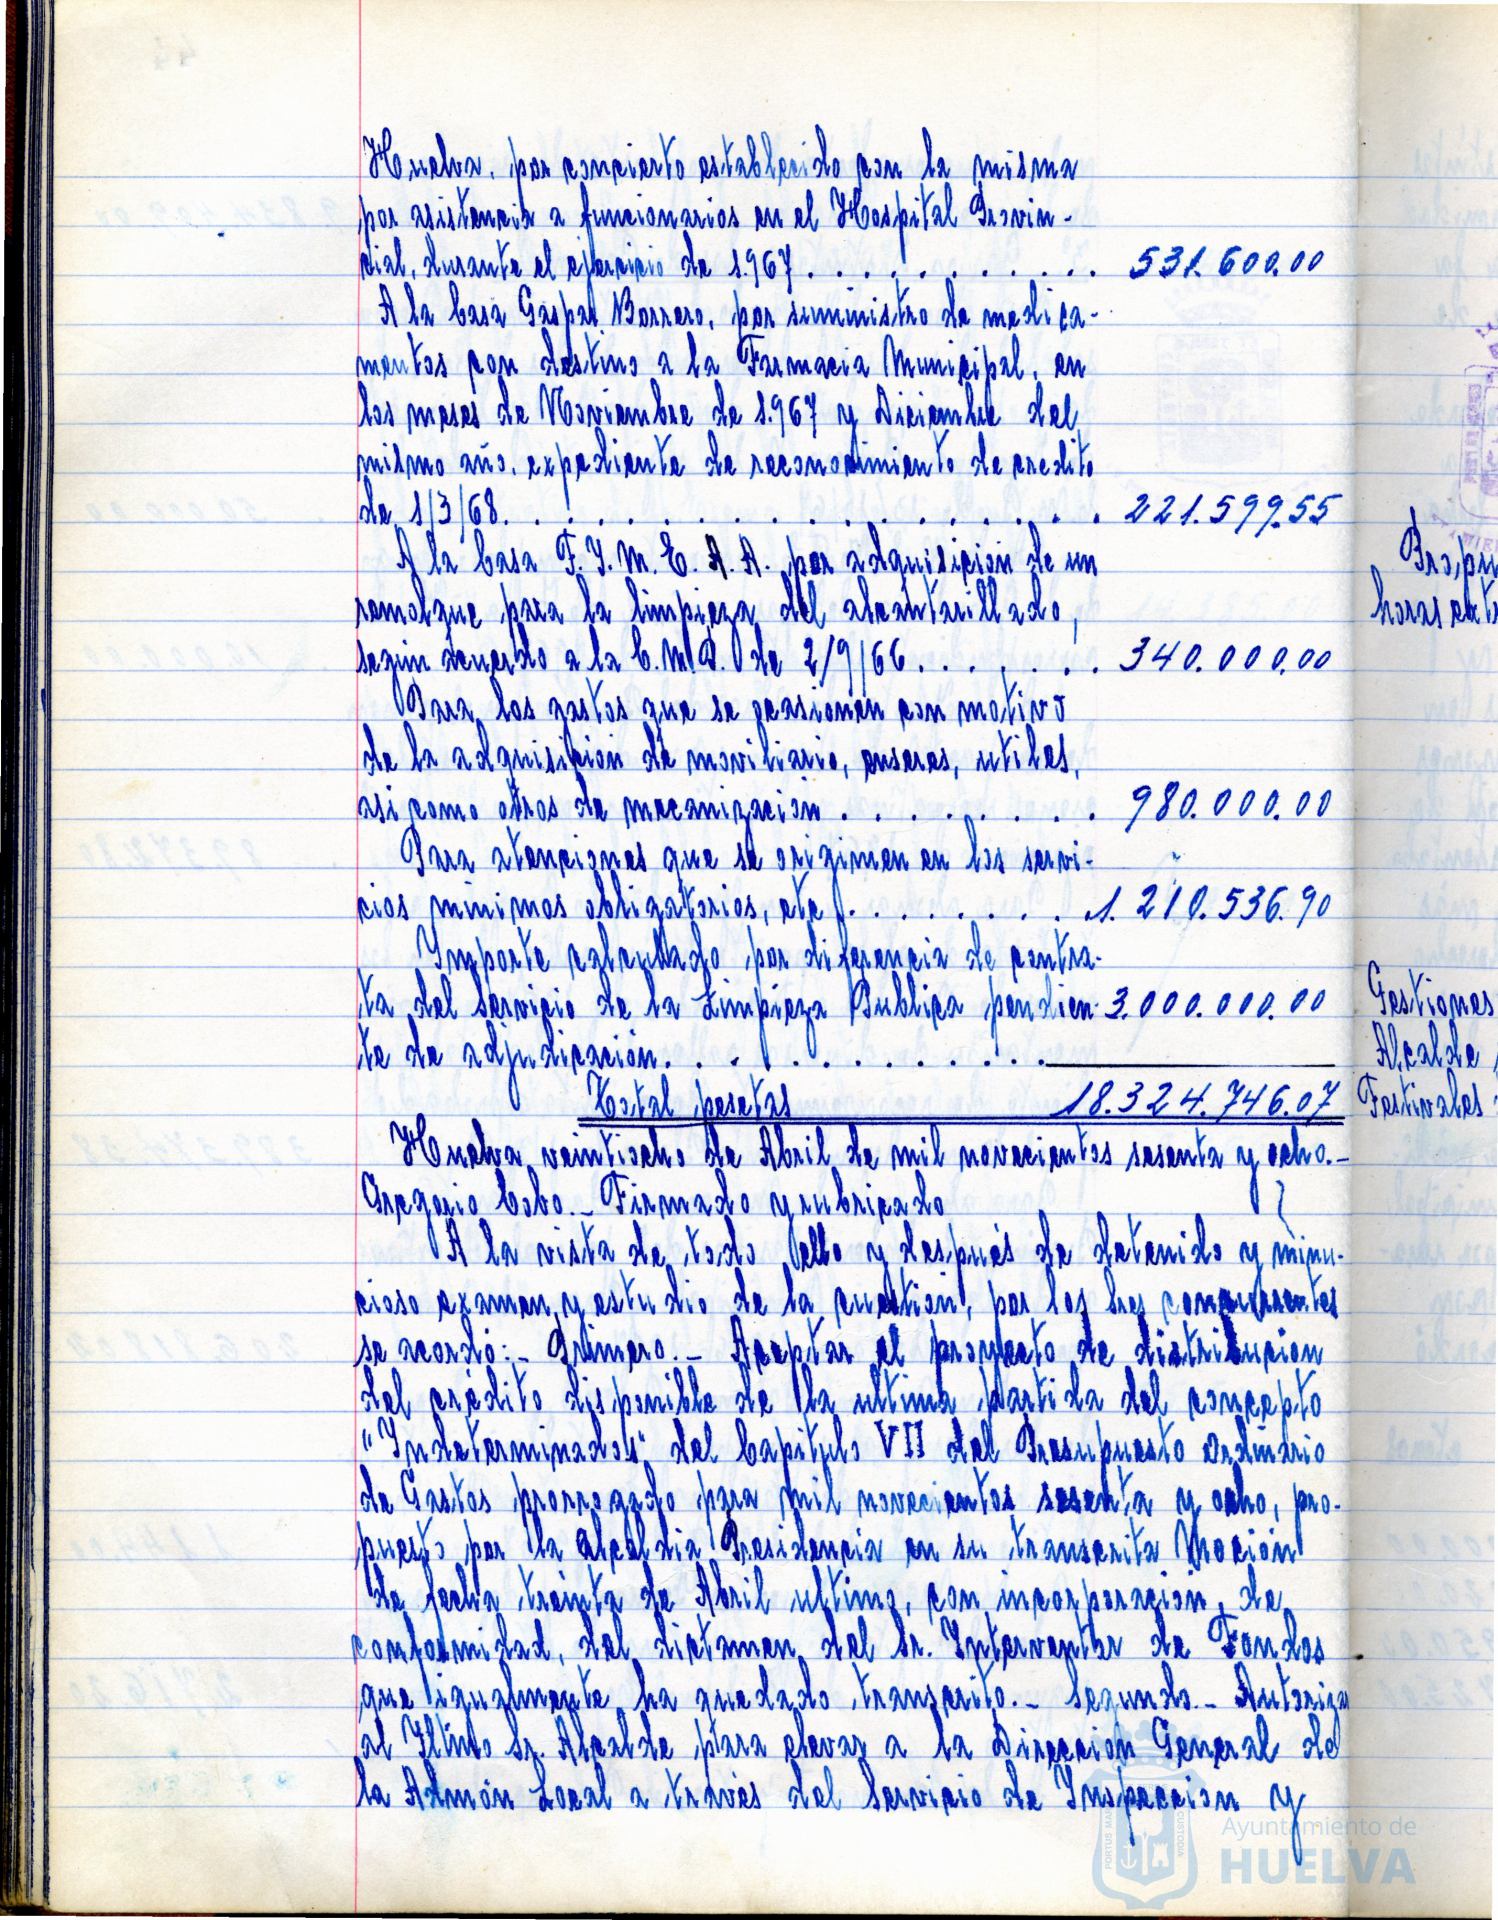 Huelva, por concierto establecido con la misma
por asistencia a funcionarios en el Hospital Provin-
cial, durante el ejercicio de 1.967 . . . . . . . . . . . 531.600.00
A la Casa Gaspar Borrero, por suministro de medica-
mentos con destino a la Farmacia Municipal, en
los meses de Noviembre de 1.967 y Diciembre del
mismo año, expediente de reconocimiento de credito
de 1/3/68. . . . . . . . . . . . . . . . . . . 221.599.55
A la Casa F.I.M.E.A.A. por adquisición de un
remolque para la limpieza del alcantarillado,
según acuerdo a la C.M.P. de 2/9/66 . . . . . . . 340.000.00
Para los gastos que se ocasionen con motivo
de la adquisición de moviliario, enseres, utiles,
asi como otros de mecanización . . . . . . . . . 980.000.00
Para atenciones que se originen en los servi-
cios minimos obligatorios, etc . . . . . . . . 1.210.536.90
Importe calculado por diferencia de contra-
ta del Servicio de la Limpieza Publica pendien- 3.000.000.00
te de adjudicación. . . . . . . . . . . . .
Total pesetas 18.324.746.07
Huelva veintiocho de Abril de mil novecientos sesenta y ocho.-
Gregorio Cobo.- Firmado y rubricado
A la vista de todo ello y después de detenido y minu-
cioso examen y estudio de la cuestión, por los Sres concurrentes
se acordó:- Primero.- Aceptar el proyecto de distribución
del crédito disponible de la ultima partida del concepto
"Indeterminados" del Capitulo VII del Presupuesto Ordinario
de Gastos prorrogado para mil novecientos sesenta y ocho, pro-
puesto por la Alcaldia Presidencia en su transcrita Moción
de fecha treinta de Abril ultimo, con incorporación, de
conformidad, del dictamen del Sr. Interventor de Fondos
que igualmente ha quedado transcrito.- Segundo.- Autorizar
al Iltmo Sr. Alcalde para elevar a la Dirección General de
la Admón Local a través del Servicio de Inspección y
horas
Gestiones
Alcalde
Festivales
Ayuntamiento de
HUELVA